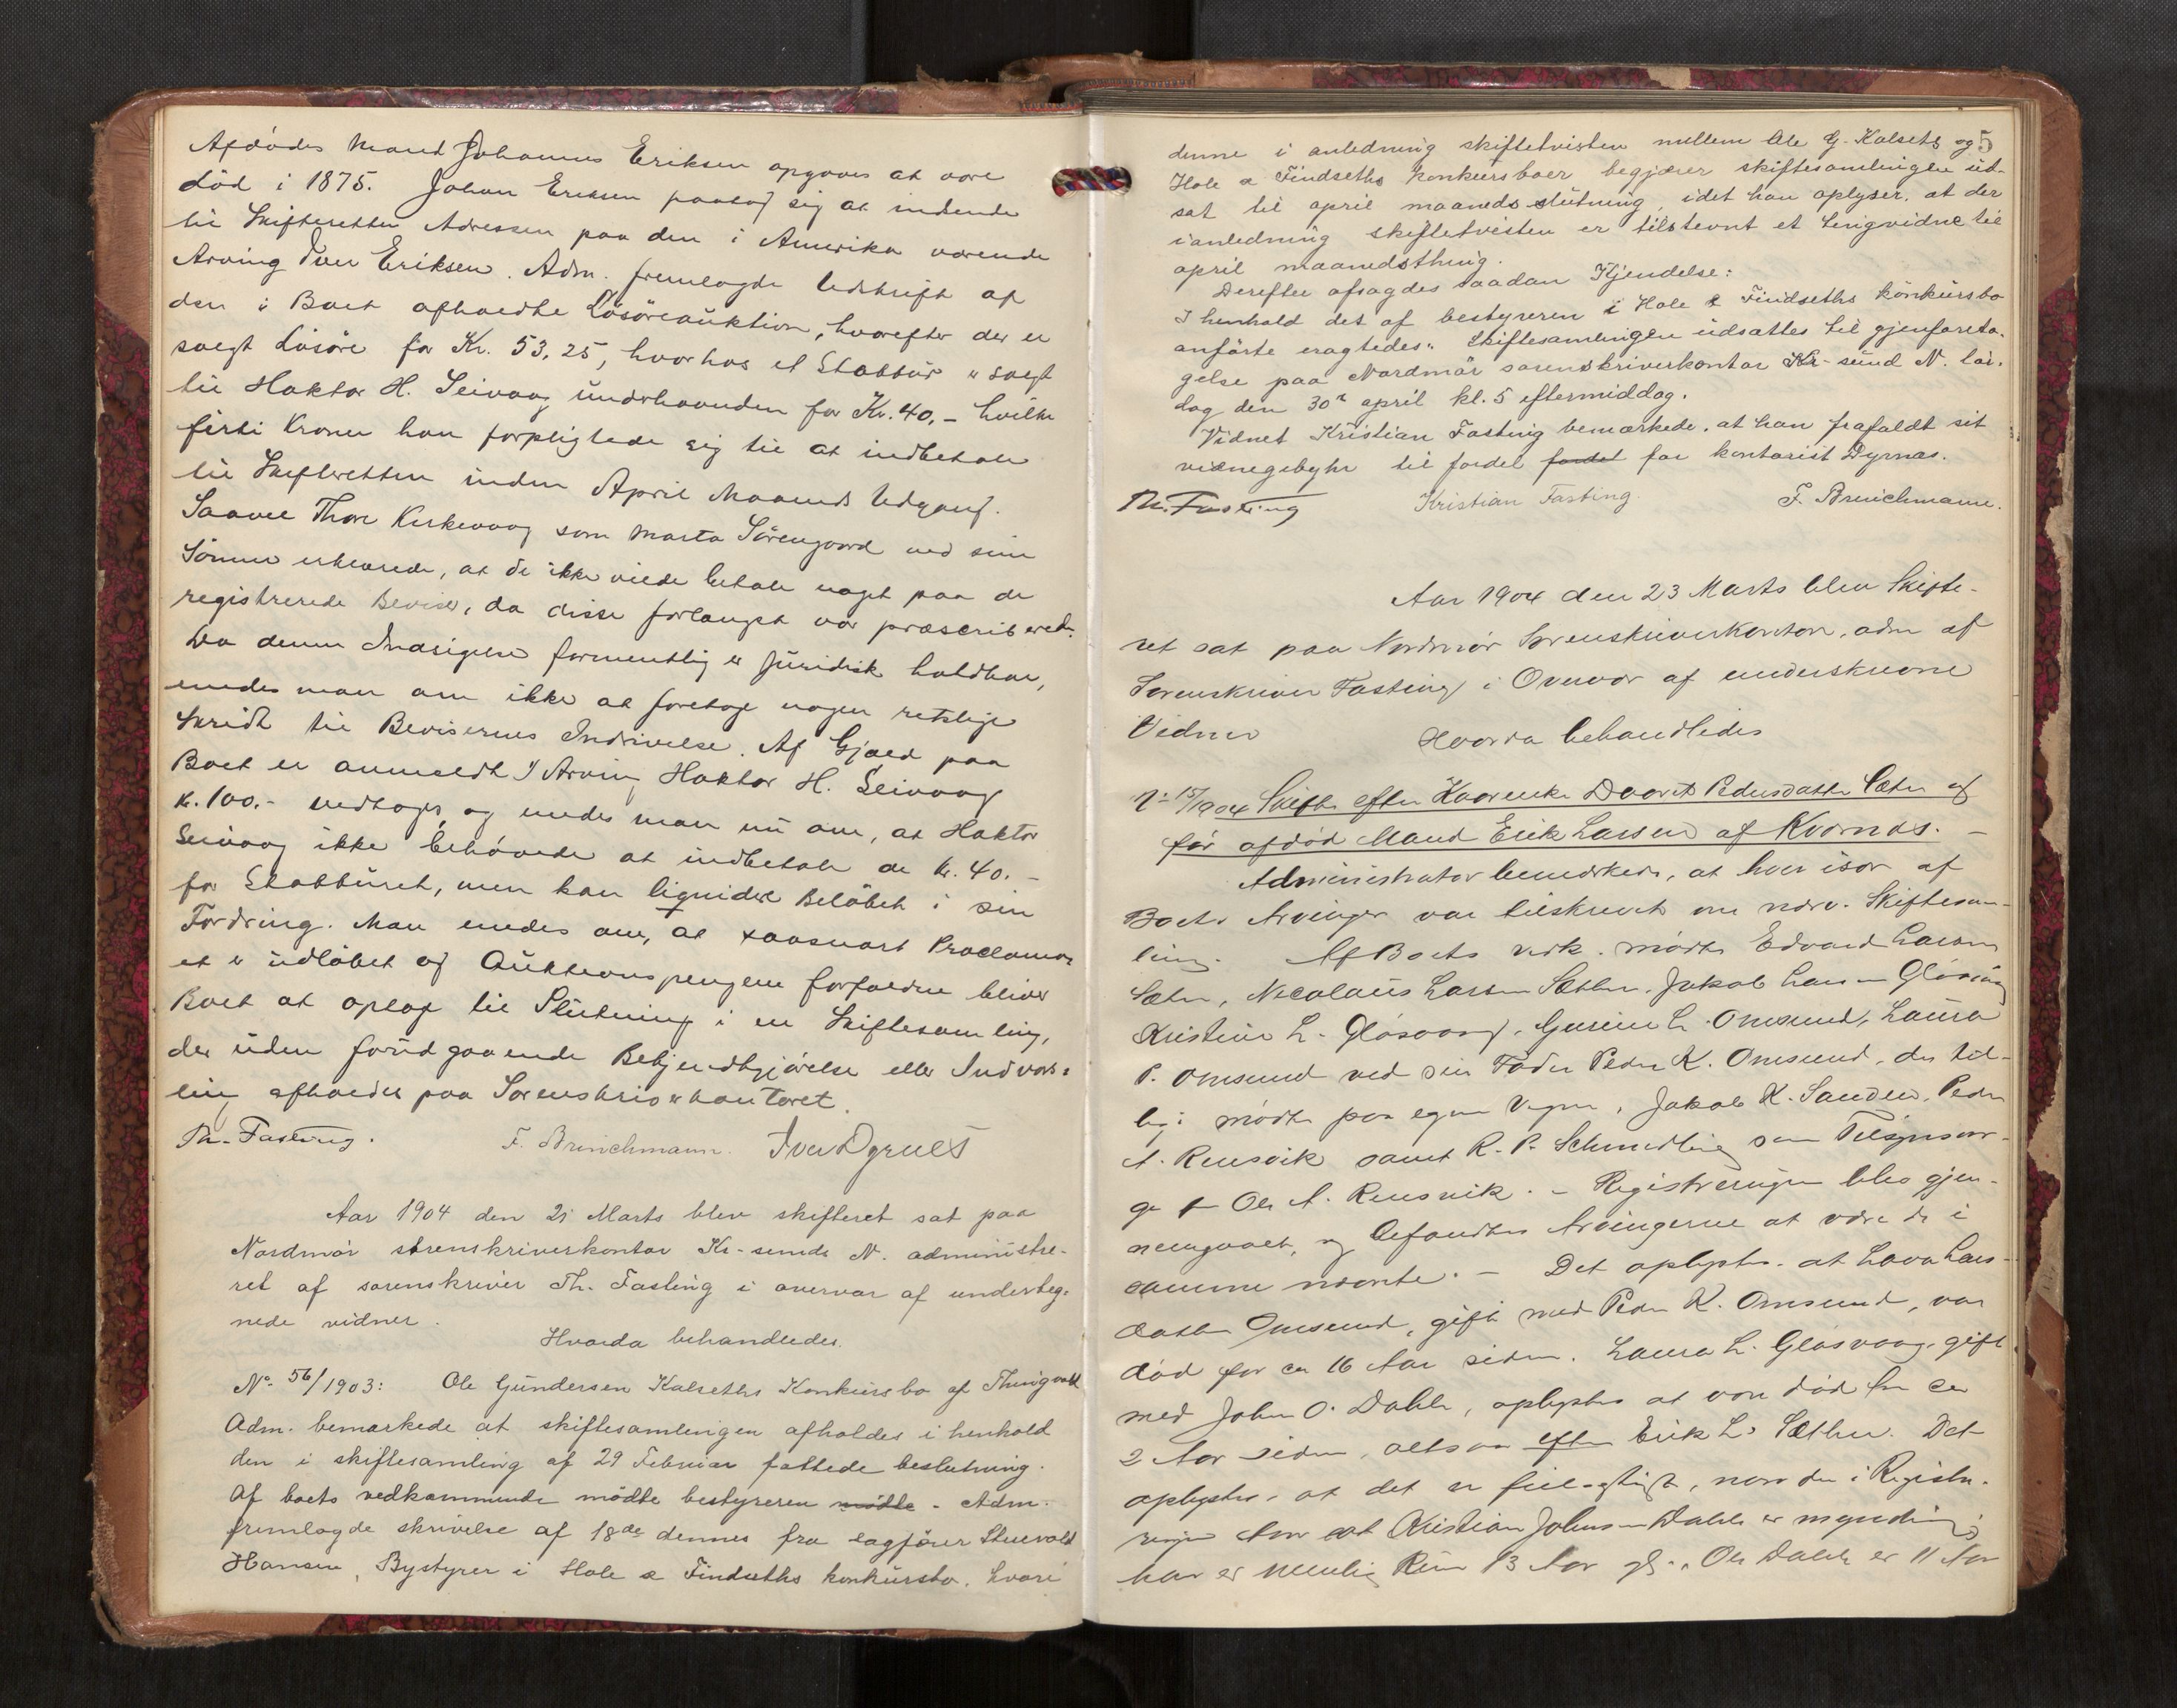 Afdødes Mand Johannes Eriksen opgaves at være
død i 1875. Johan Eriksen paatog sig at indsende
til Skifteretten Adressen paa den i Amerika værende
Arving Iver Eriksen. Adm. fremlagde Udskrift af
den i Boet afholdte Løsøreauktion, hvorefter der er
solgt Løsøre for Kr. 53,25, hvorhos et Stabbur er solgt
til Haktor H. Leivaag underhaanden for Kr. 40,- hvilke
firti Kroner han forpligtede sig til at indbetale
til Skifteretten inden April Maaneds Udgang.
Saavel Thore Kirkevaag som Marta Sørengaard ved sin
Sønner erklærede, at de ikke vilde betale noget paa de
registrerede Beviser, da disse forlængst var præscriberede.
Da denne Indsigelse formentlig er juridisk holdbar,
enedes man om ikke at foretage nogen retslige
Skridt til Bevisernes Inddrivelse. Af Gjæld paa
Boet er anmeldt Arving Haktor H. Leivaag
Kr. 100.- vedtoges, og enedes man nu om, at Haktor
Leivaag ikke behøvede at indbetale de Kr. 40.-
for Stabburet, men kan liquidere Beløbet i sin
Fordring. Man enedes om, at saasnart Proclamaet
et er udløbet og Auktionspengene forfaldne bliver
Boet at optage til Slutning i en Skiftesamling,
der uden forudgaaende Bekjendtgjørelse eller Indvars-
ling afholdes paa Sorenskriverkontoret.
Th. Fasting. F. Brinchmann. Iver Dyrnes
Aar 1904 den 21 Marts blev skifteret sat paa
Nordmør sorenskriverkontor Kr-sunds N. administre-
ret af sorenskriver Th. Fasting i overvær af underteg-
nede vidner.
Hvorda behandledes.
No. 56/1903: Ole Gundersen Kalseths Konkursbo af Thingvold
Adm. bemærkede at skiftesamlingen afholdes i henhold
den i skiftesamling af 29 Februar fattede beslutning.
Af boets vedkommende mødte bestyreren mødte. Adm.
fremlagde skrivelse af 18de dennes fra sagfører Stuevold
Hansen, Bystyrer i Hole & Findseths konkursbo, hvori
5
denne i anledning skiftetvisten mellem Ole G. Kalseths og
Hole & Findseths konkursboer begjærer skiftesamlingen ud-
sat til april maaneds slutning, idet han oplyser, at der
i anledning skiftetvisten er tilstevnt et tingvidne til
april maanedsthing.
Derefter afsagdes saadan Kjendelse:
I henhold det af bestyreren i Hole & Findseths konkursbo
anførte eragtedes: Skiftesamlingen udsættes til gjenforeta-
gelse paa Nordmør sorenskriverkontor Kr-sund N. lør-
dag den 30te april kl. 5 eftermiddag.
Vidnet Kristian Fasting bemærkede, at han frafaldt sit
vidnegebyhr til fordel fordel for kontorist Dyrnæs.
Th. Fasting Kristian Fasting. F. Brinchmann.
Aar 1904 den 23 Marts blev Skifte-
ret sat paa Nordmør Sorenskriverkontor, adm af
Sorenskriver Fasting i Overvær af underskrevne
Vidner Hvorda behandledes
No 15/1904 Skifte efter Kaarenke Daarit Pedersdatter Sæter og
før afdød Mand Erik Larsen af Kvernæs.-
Administrator bemærkede, at hver især af
Boets Arvinger var tilskrevet om nærv. Skiftesam-
ling. Af Boets vedk. mødte Edvard Larsen
Sæter, Nicolaus Larsen Sæther, Jakob Larsen Gløsvaag
Kristine L. Gløsvaag, Gurine L. Omsund, Laura
P. Omsund ved sin Fader Peder K. Omsund, der til-
lige mødte paa egne Vegne, Jakob K. Sanden, Peder
A. Rensvik samt R. P. Schmedling som Tilsynsvær-
ge f. Ole A. Rensvik. - Registreringen blev gjen-
nemgaaet, og befandtes Arvingerne at være de i
samme nævnte. - Det oplystes, at Lava Lars-
datter Omsund, gift med Peder K. Omsund, var
død for ca 16 Aar siden. Laura L. Gløsvaag, gift
med John O. Dahle, oplystes at være død for ca
2 Aar siden, altsaa efter Erik L. Sæther. Det
oplystes, at det er feilagtigt, naar der i Registre-
ringen staar at Kristian Johnsen Dahle er myndig;
han er nemlig kun 13 Aar gl., Ole Dahle er 11 Aar